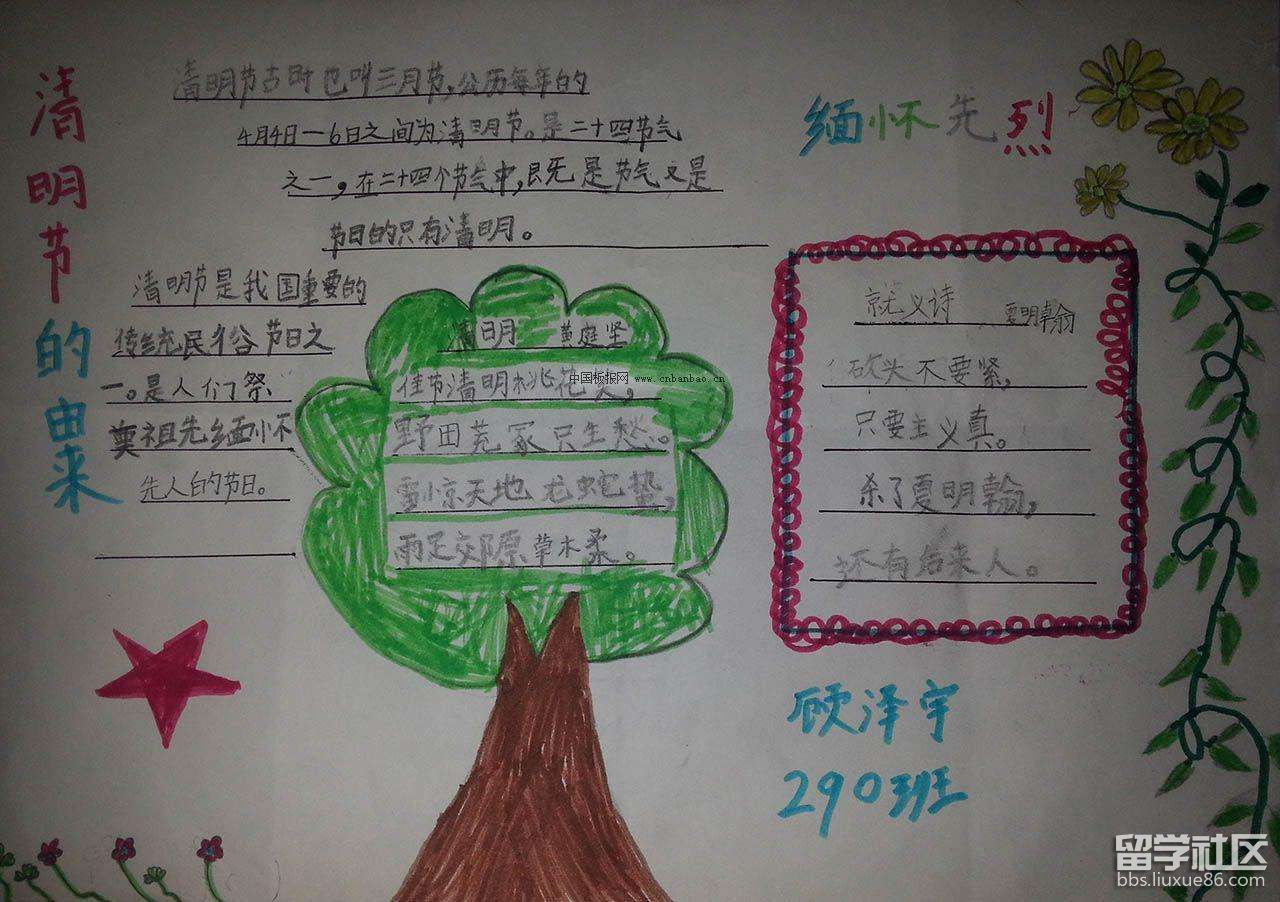 清明节的由来
清明节古时也叫三月节,公历每年的
4月4日—6日之间为清明节。是二十四节气
之一,在二十四个节气中,既是节气又是
节日的只有清明。
清明节是我国重要的
传统民俗节日之
一。是人们祭
奠祖先缅怀
先人的节日。
清明 黄庭坚
佳节清明桃花笑,
野田荒冢只生愁。
雷惊天地龙蛇蛰,
雨足郊原草木柔。
中国板报网 www.cnbanbao.cn
缅怀先烈
就义诗 夏明翰
砍头不要紧,
只要主义真。
杀了夏明翰,
还有后来人。
顾泽宇
290班
留学社区
bbs.liuxue86.com